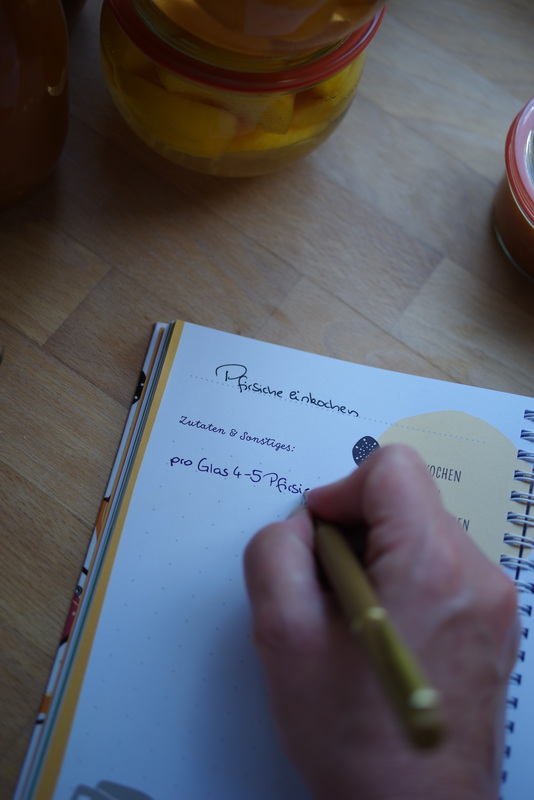 Pfirsiche einkochen
Zutaten & Sonstiges:
pro Glas 4-5 Pfirsic
KOCHEN
EN